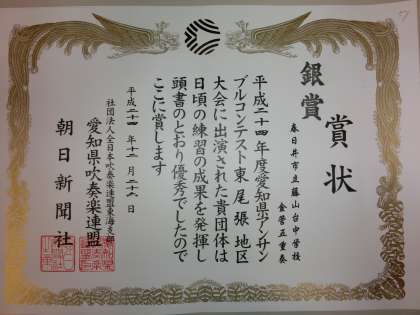 賞状
銀賞
春日井市立藤山台中学校
金管五重奏
平成二十四年度愛知県アンサン
ブルコンテスト東尾張地区
大会に出演された貴団体は
日頃の練習の成果を発揮し
頭書のとおり優秀でしたので
ここに賞します
平成二十四年十二月二十八日
社団法人全日本吹奏楽連盟東海支部
愛知県吹奏楽連盟
朝日新聞社